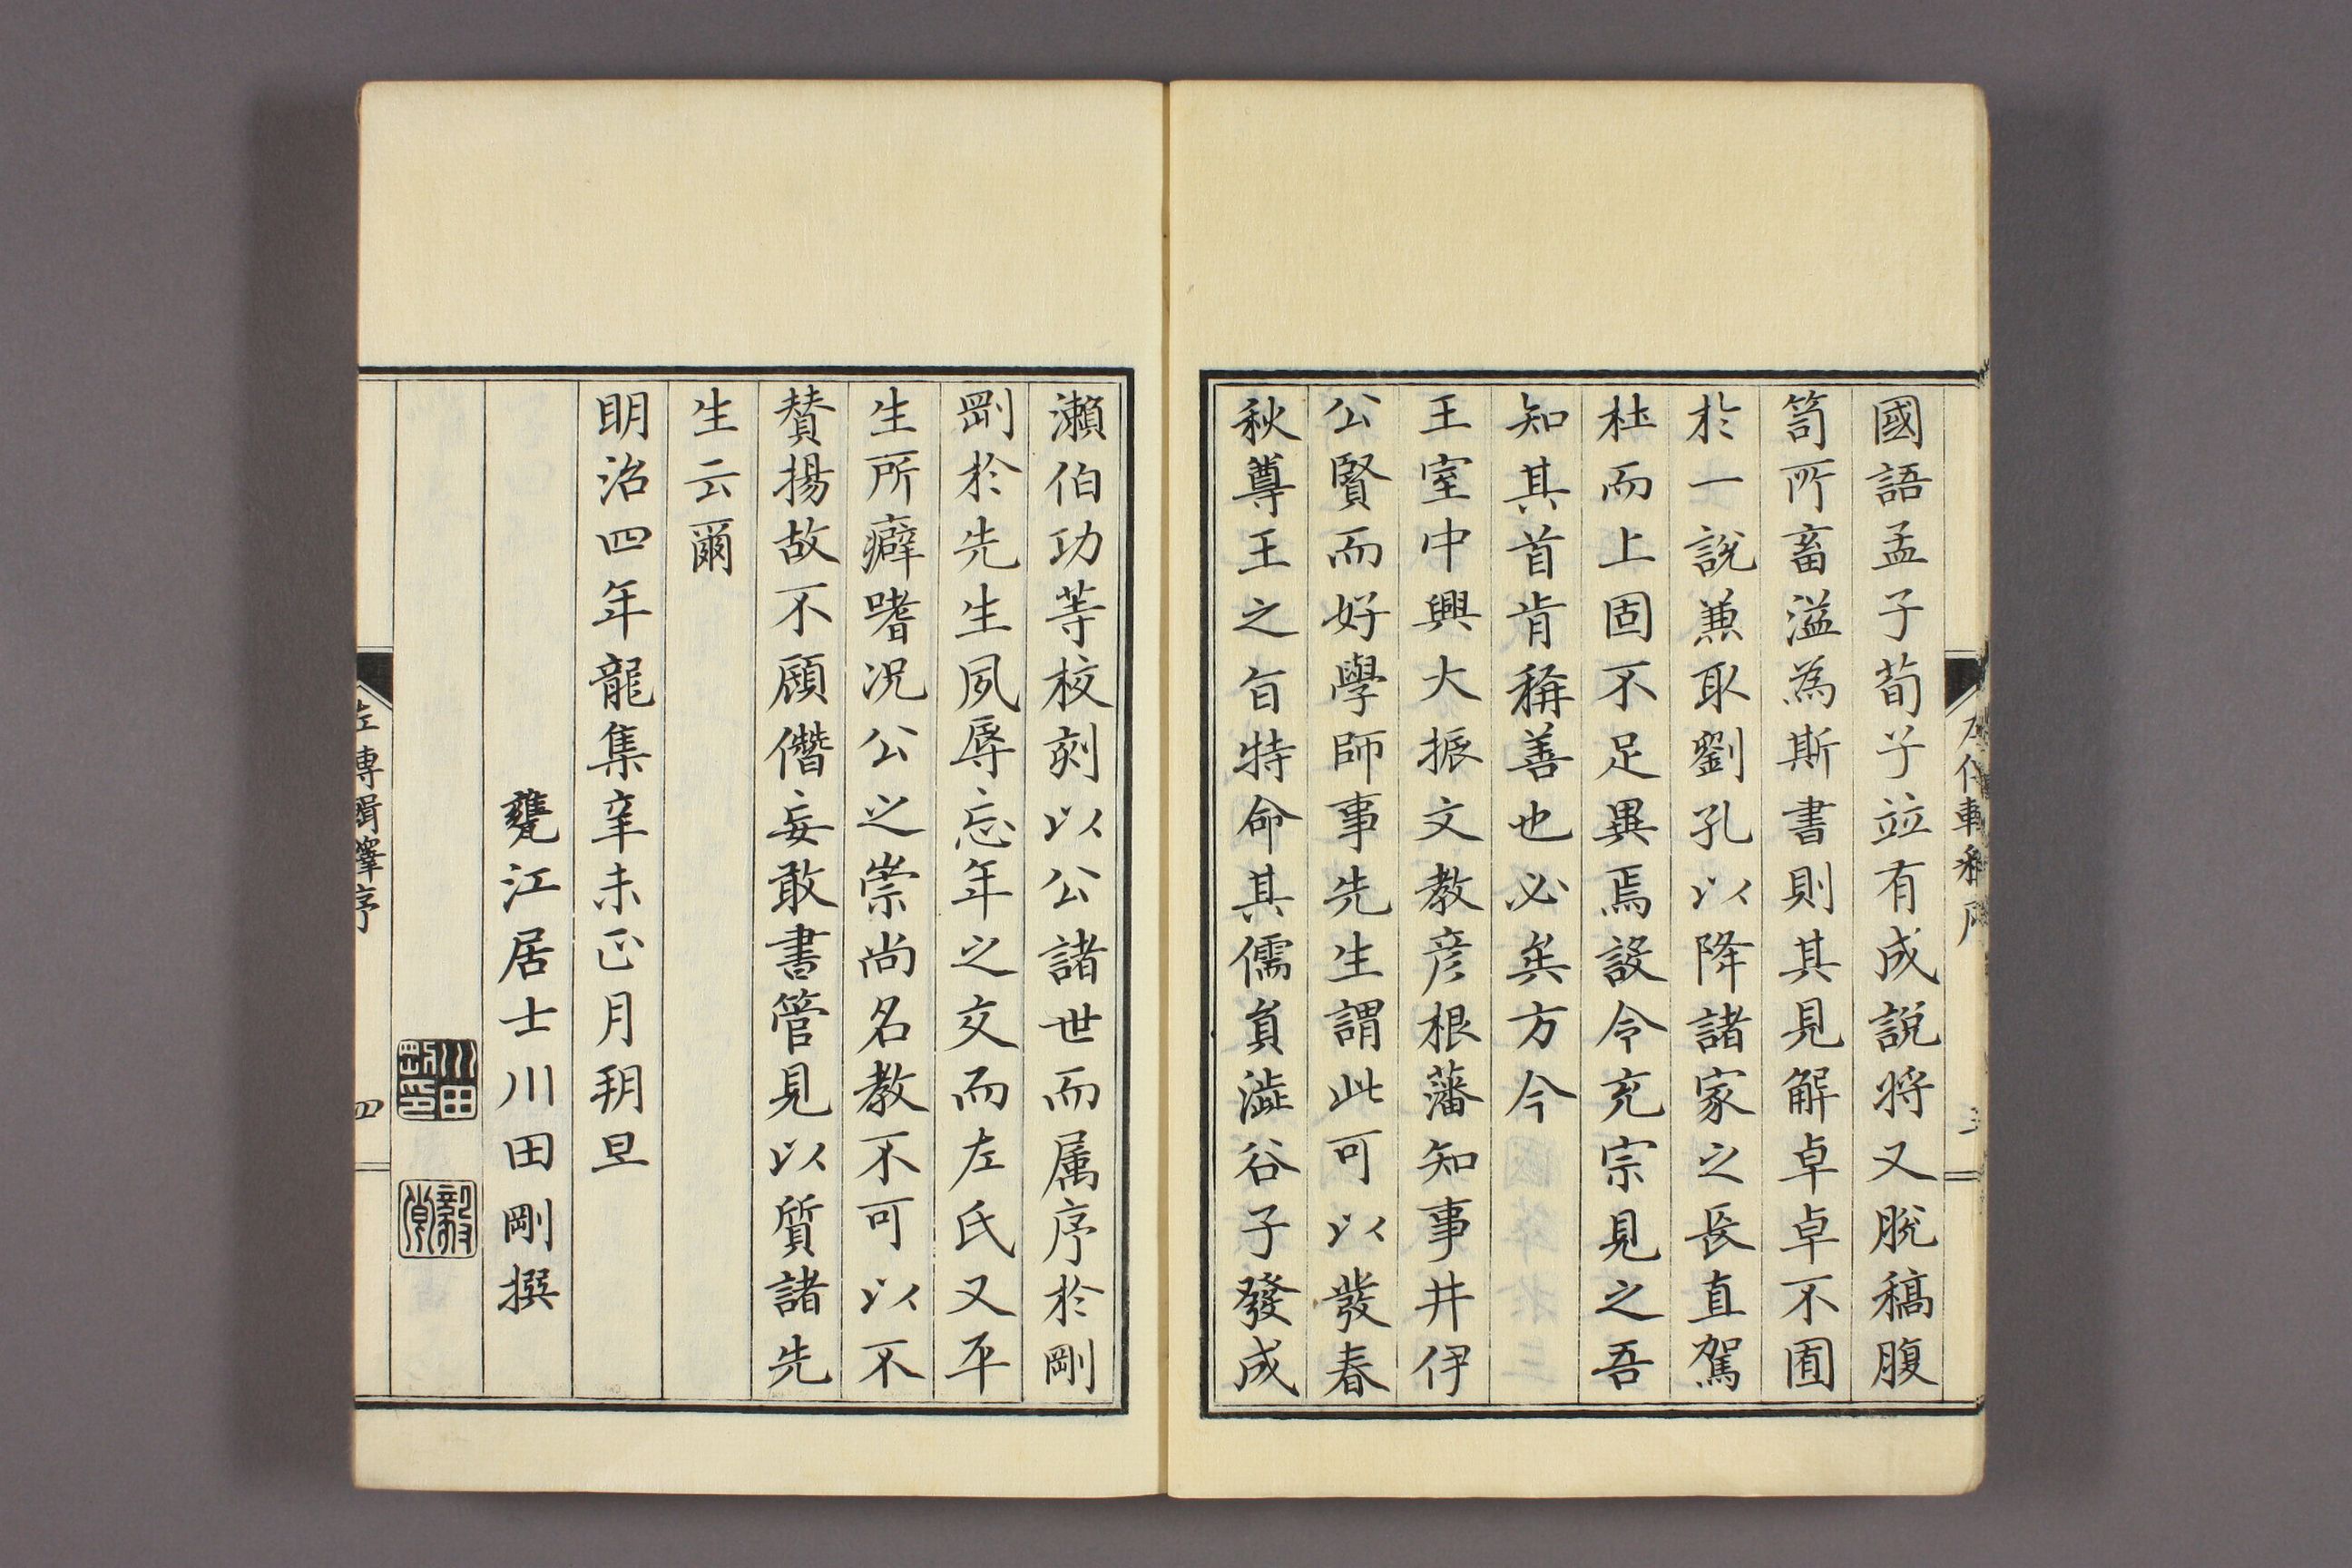 國語孟子荀子竝有成說將又脫稿腹
笥所畜溢為斯書則其見解卓卓不囿
於一說兼取劉孔以降諸家之長直駕
杜而上固不足異焉設令充宗見之吾
知其首肯稱善也必矣方今
王室中興大振文教彦根藩知事井伊
公賢而好學師事先生謂此可以發春
秋尊王之旨特命其儒員澁谷子發成
瀨伯功等校刻以公諸世而属序於剛
剛於先生夙辱忘年之交而左氏又平
生所癖嗜况公之崇尚名教不可以不
賛揚故不顧僭妄敢書管見以質諸先
生云爾
明治四年龍集辛未正月朔旦
甕江居士川田剛撰
川田剛印
毅卿
左傳輯釋序
四